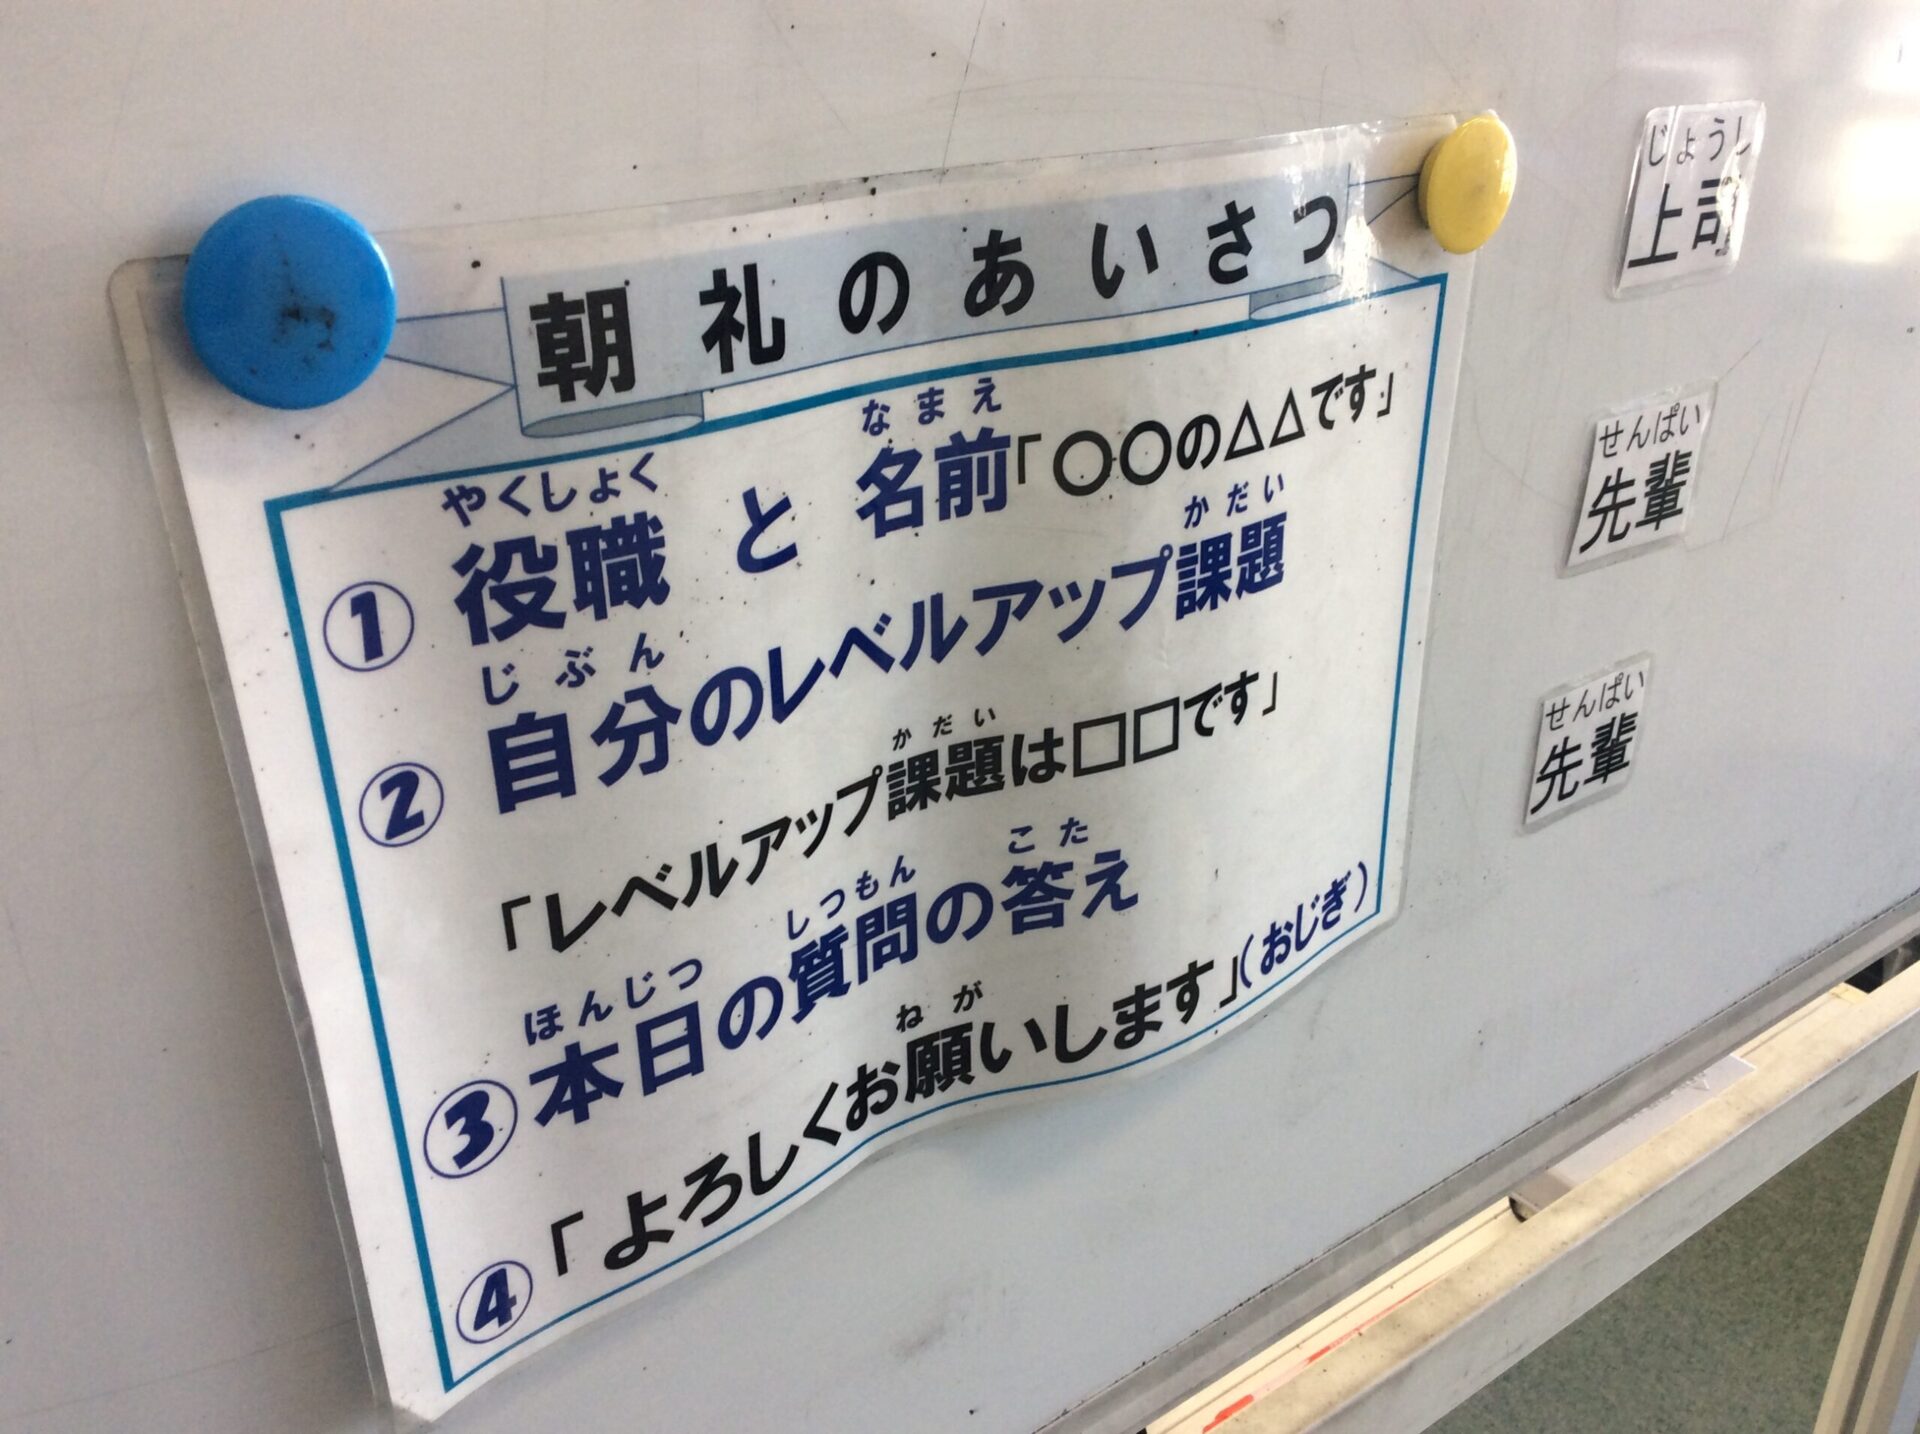 朝礼のあいさつ
やくしょく なまえ
①役職 と 名前「〇〇の△△です」
じぶん かだい
②自分のレベルアップ課題
かだい
「レベルアップ課題は□□です」
ほんじつ しつもん こた
③本日の質問の答え
ねが
④「よろしくお願いします」(おじぎ)
じょうし
上司
せんぱい
先輩
せんぱい
先輩